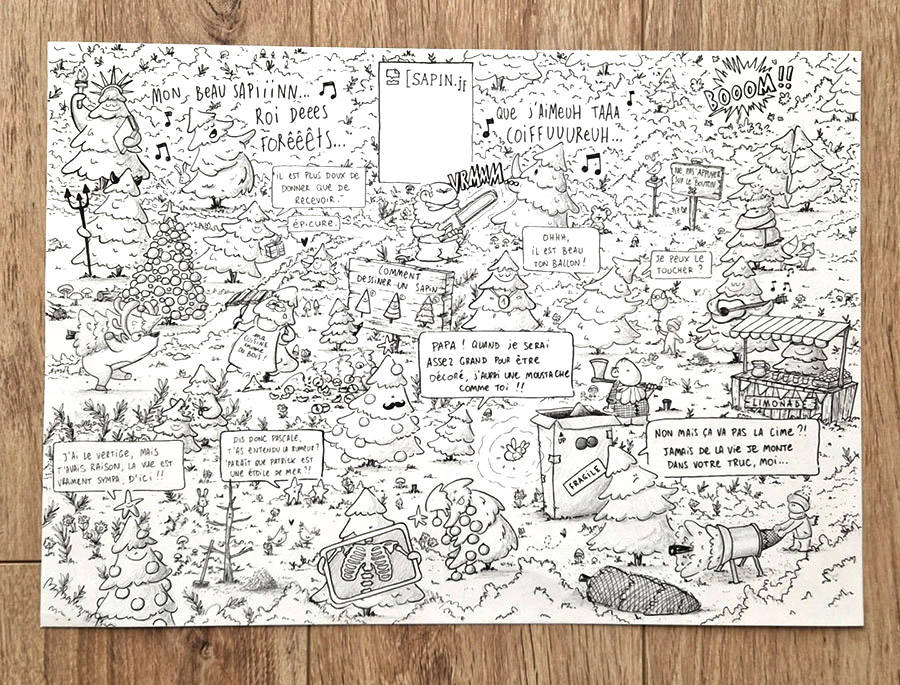 MON, BEAU SAPIIINN...
ROI DEEES
FORÊÊÊTS...
[SAPIN.j
QUE J'AIMEUH TAAA
COIFFUUUREUH...
BOOOM!!
IL EST PLUS DOUX DE
DONNER QUE DE
RECEVOIR.
ÉPICURE.
VRMMM
NE PAS APPUYER
SUR LE BOUTON
OHHH,
IL EST BEAU
TON BALLON!
JE PEUX LE
TOUCHER ?
COMMENT
DESSINER UN SAPIN
MA
CUISINE
AU FEU
DE BOIS!
PAPA ! QUAND JE SERAI
ASSEZ GRAND POUR ÊTRE
DÉCORÉ, J'AURAI UNE MOUSTACHE
COMME TOI !!
LIMONADE
J'AI LE VERTIGE, MAIS
T'AVAIS RAISON, LA VUE EST
VRAIMENT SYMPA, D'ICI !!
DIS DONC PASCALE,
T'AS ENTENDU LA RUMEUR?
PARAÎT QUE PATRICK EST
UNE ÉTOILE DE MER ?!
UP
FRAGILE
NON MAIS ÇA VA PAS LA CIME ?!
JAMAIS DE LA VIE JE MONTE
DANS VOTRE TRUC, MOI...